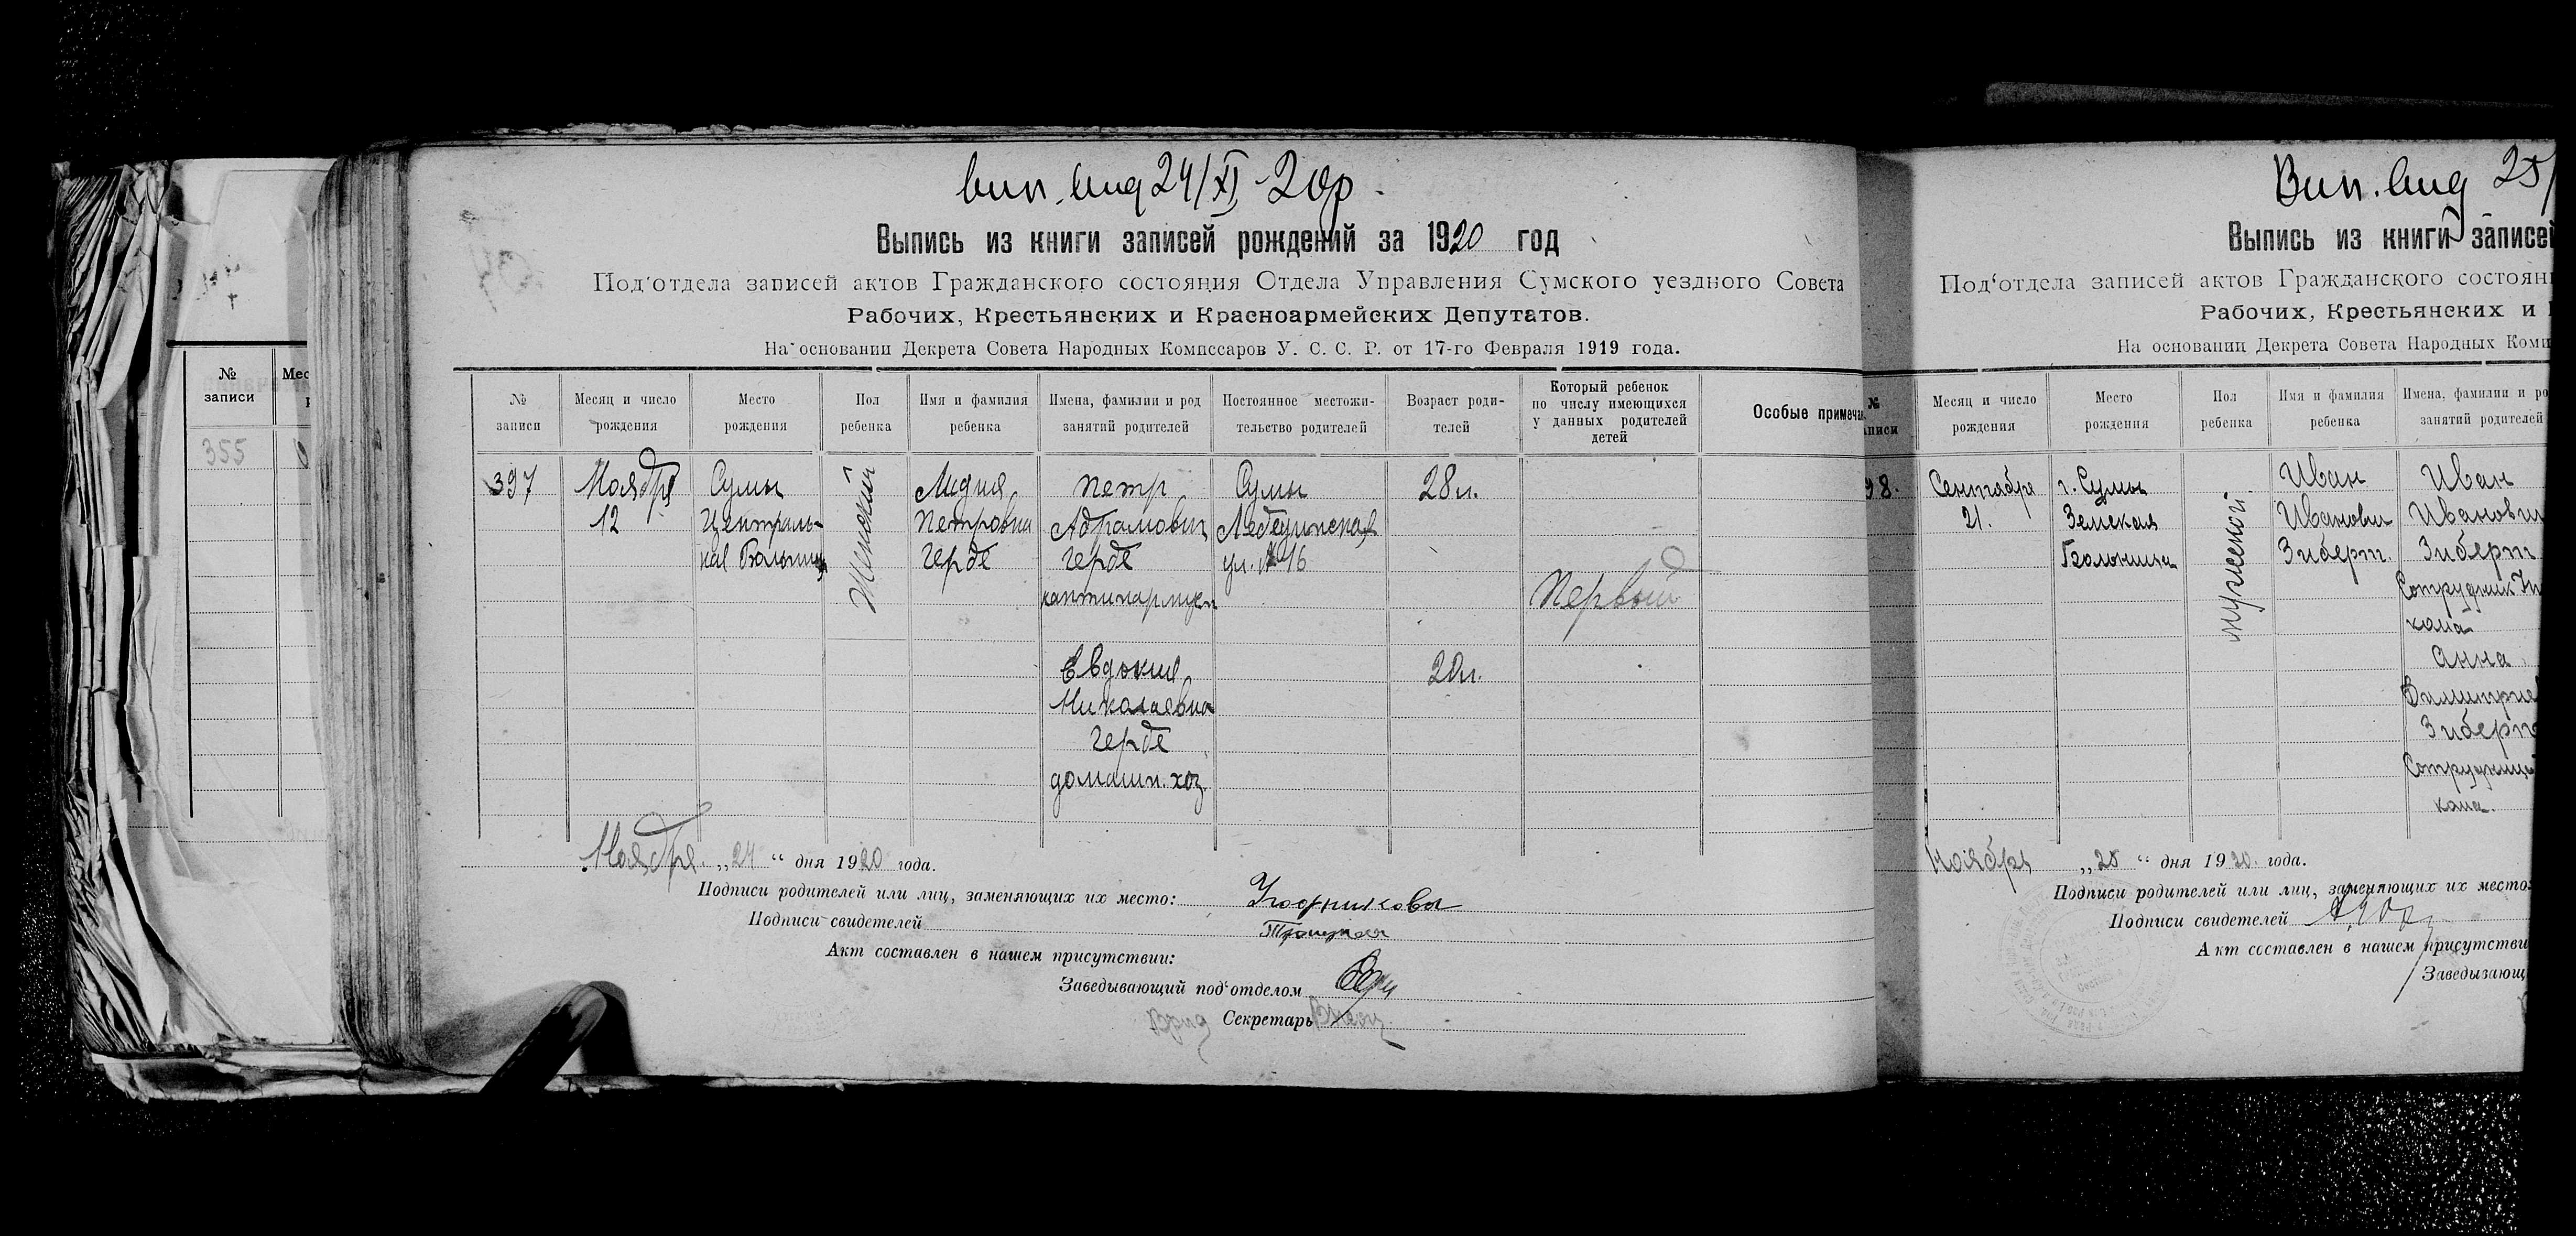 №
записи
355
вип. вид 24/XI 20р.
Выпись из книги записей рождений за 1920 год
Под'отдела записей актов Гражданского состояния Отдела Управления Сумского уездного Совета
Рабочих, Крестьянских и Красноармейских Депутатов.
На основании Декрета Совета Народных Комиссаров У. С. С. Р. от 17-го Февраля 1919 года.
№ записи
Месяц и число рождения
Место рождения
Пол ребенка
Имя и фамилия ребенка
Имена, фамилии и род занятий родителей
Постоянное местожительство родителей
Возраст родителей
Который ребенок по числу имеющихся у данных родителей детей
Особые примеча
397
Ноября
12
Сумы
Централь-
ная Больница
Женский
Лидия
Петровна
Герде
Петр
Абрамович
Герде
Сумы
Лебединская
ул. № 16
28 л.
Первый
Евдокия
Николаевна
Герде
домашн. хоз.
20 л.
Ноября „24“ дня 1920 года.
Подписи родителей или лиц, заменяющих их место:
Подписи свидетелей
Акт составлен в нашем присутствии:
Заведывающий под'отделом
Врид Секретарь
Вип. вид 25/
Выпись из книги записей
Под'отдела записей актов Гражданского состоян
Рабочих, Крестьянских и
На основании Декрета Совета Народных Коми
№
аписи
Месяц и число рождения
Место рождения
Пол ребенка
Имя и фамилия ребенка
Имена, фамилии и ро
занятий родителей
98.
Сентября
21.
г. Сумы
Земская
Больница
мужеской
Иван
Иванович
Зиберт.
Иван
Иванович
Зиберт
Сотрудник
кома
Анна
Зиберт
Сотрудница
кома.
Ноября „25“ дня 1920. года.
Подписи родителей или лиц, заменяющих их место:
Подписи свидетелей
Акт составлен в нашем присутстви
Заведывающ